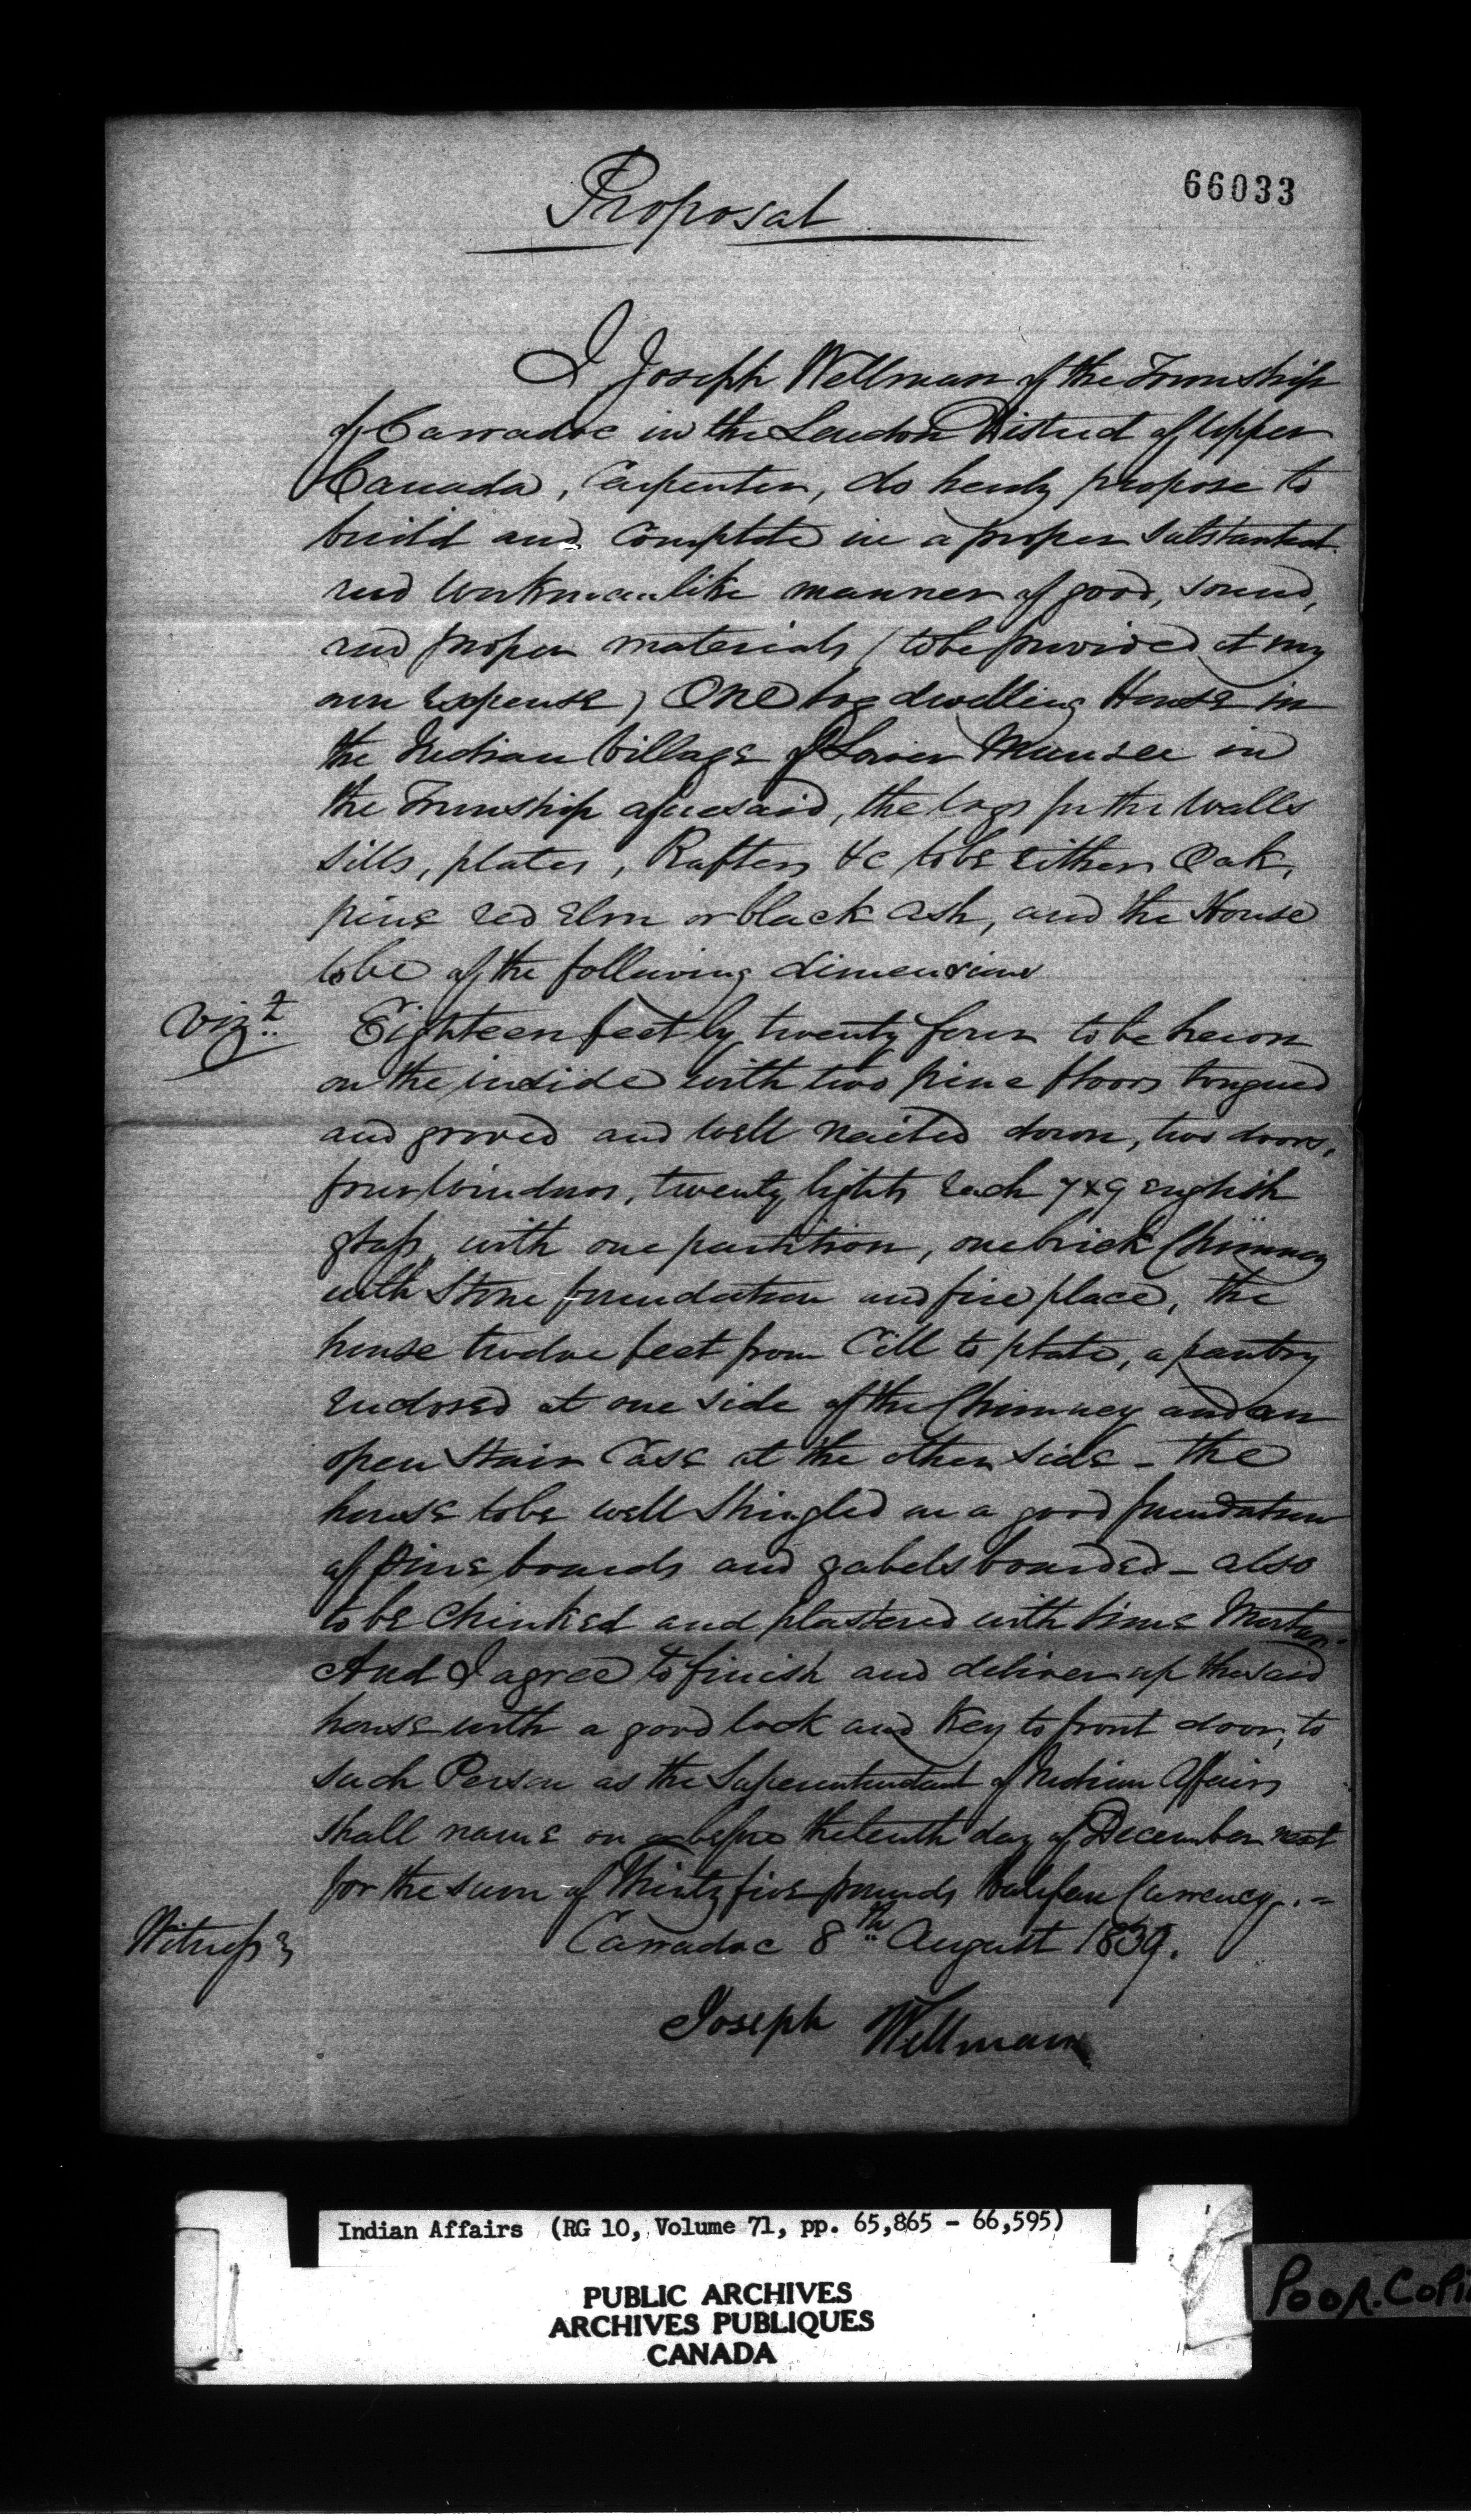 66033
Proposal
I Joseph Wellman of the Township
of Carradoc in the London District of Upper
Canada, Carpenter, do hereby propose to
build and complete in a proper substantial
and workmanlike manner of good, sound,
and proper materials (to be provided at my
own expense) One log dwelling House in
the Indian Village of Lower Munsee in
the Township aforesaid, the logs for the walls
sills, plates, Rafters &c to be either Oak,
pine red Elm or black ash, and the House
to be of the following dimensions
Vizt Eighteen feet by twenty four to be hewn
on the inside with two pine floors tongued
and groved and well nailed down, two doors,
four windows, twenty lights each 7x9 english
glass, with one partition, one brick Chimney
with stone foundation and fire place, the
house twelve feet from Cill to plate, a pantry
enclosed at one side of the Chimney and an
open stair case at the other side - the
house to be well shingled on a good foundation
of pine boards and gabels boarded - also
to be chinked and plastered with lime Mortar.
And I agree to finish and deliver up the said
house with a good lock and key to front door, to
such Person as the Superintendent of Indian Affairs
shall name on or before the tenth day of December next
for the sum of Thirty five pounds Halifax Currency. =
Witness Carradoc 8th August 1839.
Joseph Wellman
Indian Affairs (RG 10, Volume 71, pp. 65,865 - 66,595)
PUBLIC ARCHIVES
ARCHIVES PUBLIQUES
CANADA
POOR.COPI